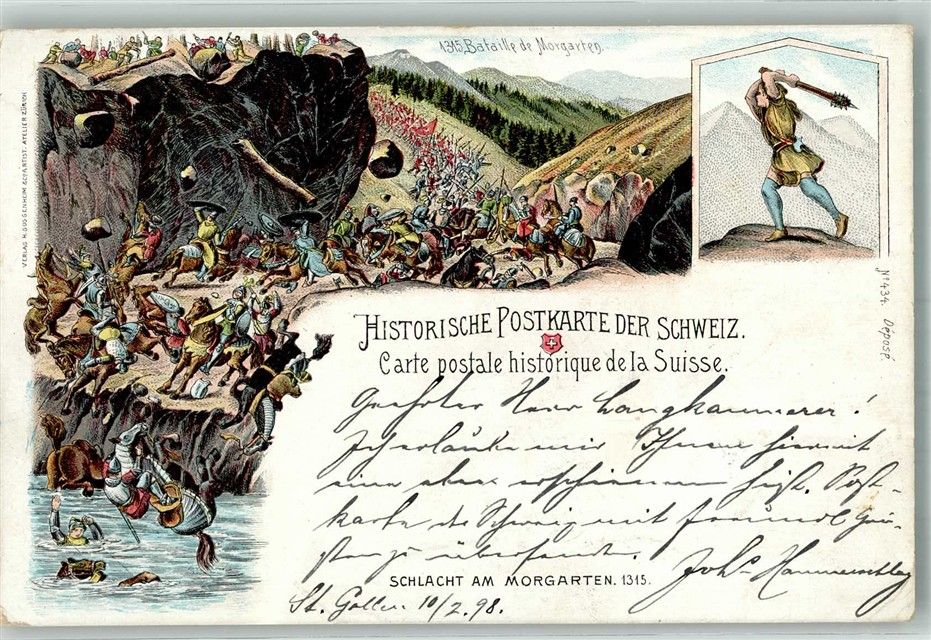 1315. Bataille de Morgarten.
VERLAG H. GUGGENHEIM & Co ARTIST. ATELIER ZÜRICH
HISTORISCHE POSTKARTE DER SCHWEIZ.
Carte postale historique de la Suisse.
No 434. Déposé
Geehrter Herr Langkammerer!
Ich erlaube mir Ihnen hiermit
eine eben erschienene hist. Post-
karte der Schweiz mit freundl Grü-
ßen zu übersenden.
Joh.
SCHLACHT AM MORGARTEN. 1315.
St. Gallen 10/2. 98.